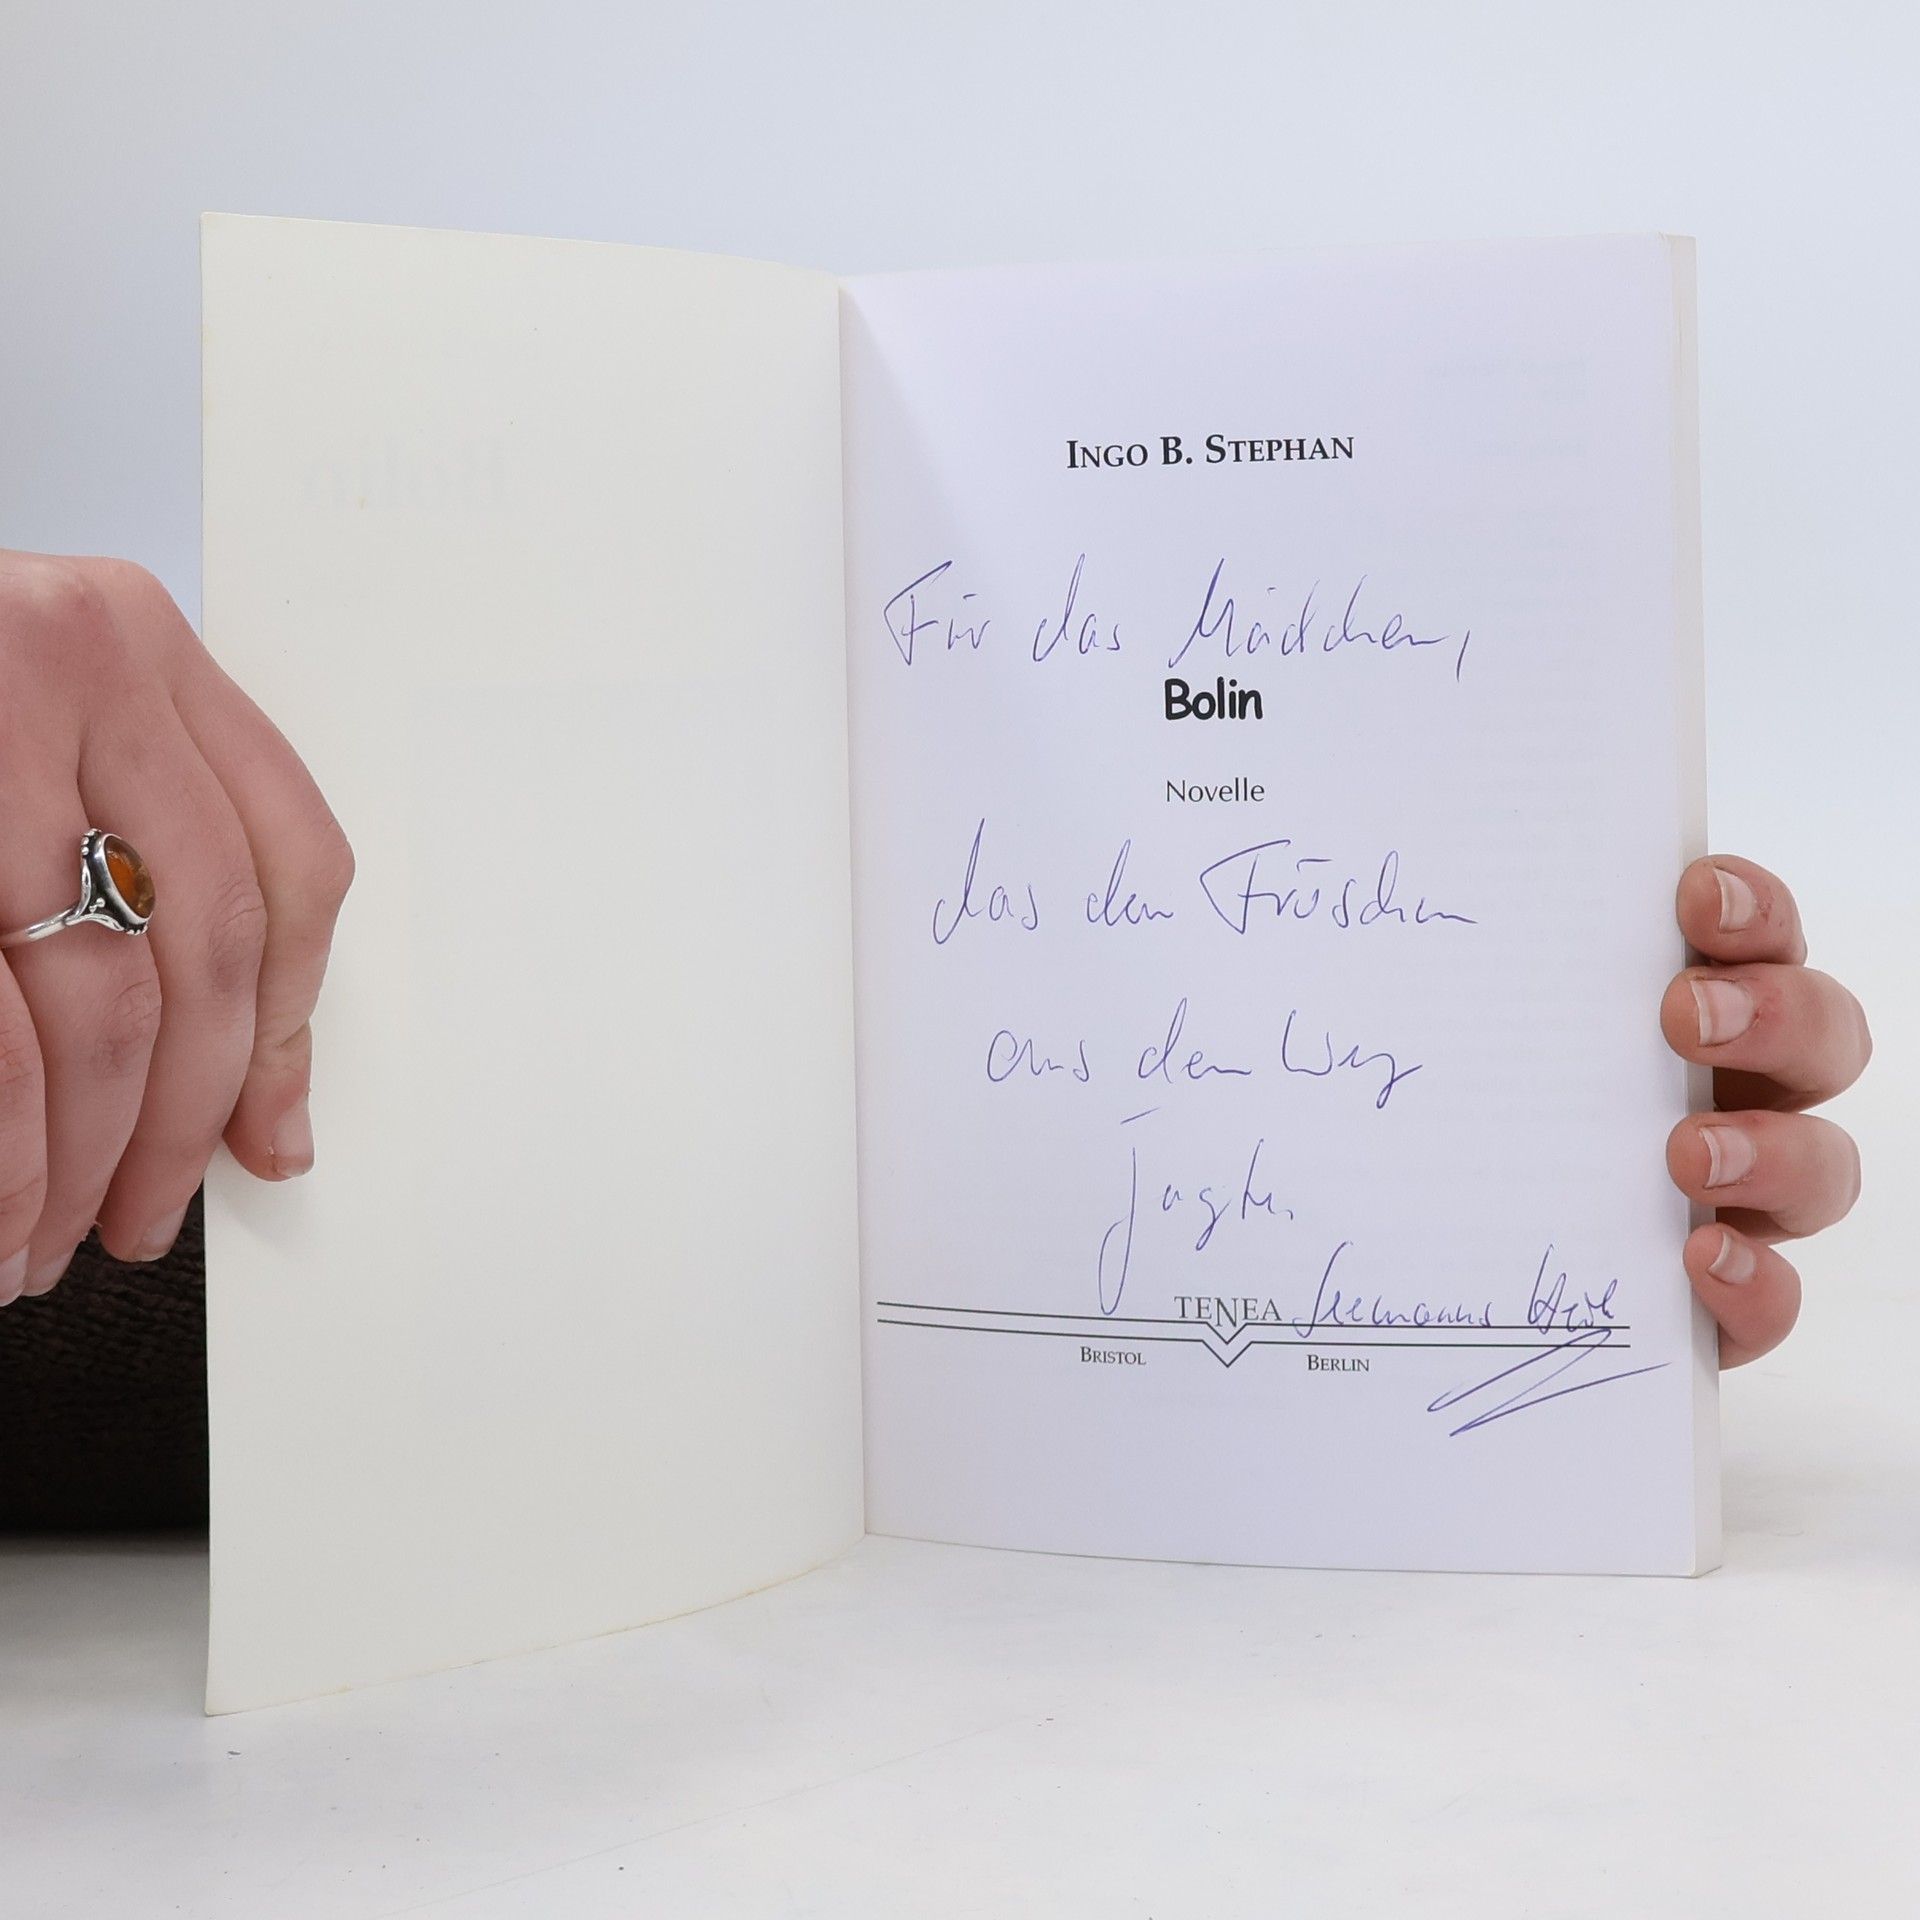 INGO B. STEPHAN
Für das Mädchen,
Bolin
Novelle
das den Fröschen
aus dem Weg
jagte.
TENEA Seemanns
BRISTOL BERLIN